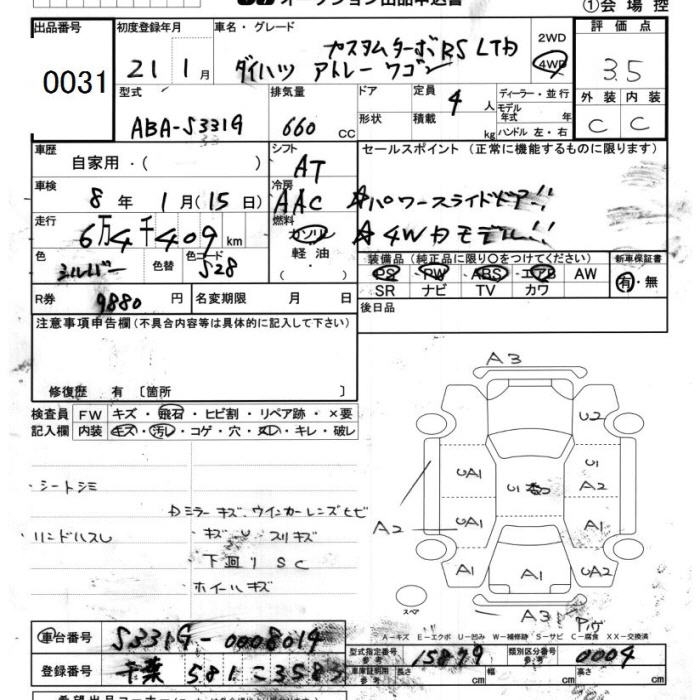 オークション出品申込書
①会場控
出品番号
0031
初度登録年月
21 1月
車名・グレード
カスタムターボRS LTD
ダイハツ アトレーワゴン
2WD
4WD
評価点
3.5
外装 内装
C C
型式
ABA-S331G
排気量
660 CC
ドア
形状
定員
4 人
積載
kg
ディーラー・並行
モデル年式 年
ハンドル 左・右
車歴
自家用・( )
シフト
AT
セールスポイント (正常に機能するものに限ります)
☆パワースライドドア!!
☆4WDモデル!!
車検
8年 1月(15日)
冷房
AAC
走行
6万4千409km
燃料
ガソリン
軽油・
( ・ )
色
シルバー
色替
色コード
S28
装備品 (純正品に限り○をつけてください)
PS PW ABS エアB AW
SR ナビ TV カワ
新車保証書
有・無
R券
9880 円
名変期限 月 日
後日品
注意事項申告欄 (不具合内容等は具体的に記入して下さい)
修復歴 有 〔箇所 〕
検査員記入欄
FW キズ・飛石・ヒビ割・リペア跡・×要
内装 キズ・汚レ・コゲ・穴・スレ・キレ・破レ
シートシミ
Dミラーキズ、ウインカーレンズヒビ
キズ U スリキズ
下回りSC
ホイールキズ
A3
U2
UA1
U1
U1
A2
A2
UA1
A1
A1
A1
UA2
A3
スペア
A-キズ E-エクボ U-凹み W-補修跡 S-サビ C-腐食 XX-交換済
車台番号
S331G-0008014
登録番号
千葉 581 こ 3583
型式指定番号
参考
15879
類別区分番号
参考
0004
車庫証明用
参考
長さ
幅
高さ